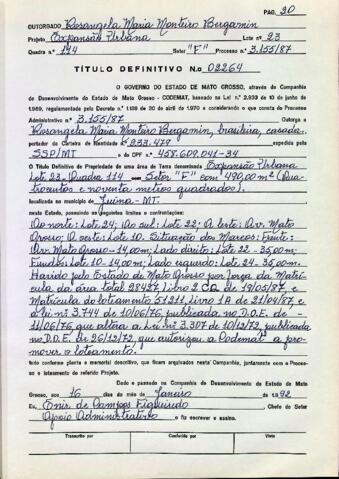 PÁG. 20
OUTORGADO Rosangela Maria Monteiro Bergamin
Projeto Expansão Urbana Lote nº 23
Quadra nº 114 Setor "F" Processo n.º 3.155/87
TÍTULO DEFINITIVO N.o 02264
O GOVERNO DO ESTADO DE MATO GROSSO, através da Companhia
de Desenvolvimento do Estado de Mato Grosso - CODEMAT, baseado na Lei n.º 2.939 de 10 de junho de
1969, regulamentada pelo Decreto n.º 1.188 de 20 de abril de 1970 e considerando o que consta do Processo
Administrativo n.º 3.155/87 Outorga a
Rosangela Maria Monteiro Bergamin, brasileira, casada.
portador da Carteira de Identidade n.º 233.479 expedida pela
SSP/MT e do CPF n.º 458.609.041-34
O Título Definitivo de Propriedade de uma área de Terra denominada Expansão Urbana
Lote 23 - Quadra 114 com Setor "F" com 490,00 m² (Qua-
trocentos e noventa metros quadrados).
localizada no município de Juina - MT.
neste Estado, possuindo os seguintes limites e confrontações:
Ao norte: Lote 24; Ao sul: Lote 22; A leste: Av. Mato
Grosso; A oeste: Lote 10. Situação dos Marcos: Frente:
Av. Mato Grosso - 14,00m; Lado direito: Lote 22 - 35,00m;
Fundos: Lote 10 - 14,00m; Lado esquerdo: Lote 24 - 35,00m.
Havido pelo Estado de Mato Grosso por força da Matrí-
cula da área total 28427, Livro 2 de 19/05/87 e
Matrícula do loteamento 51211, Livro 1A de 21/04/87 e
a lei nº 3.744 de 10/06/76, publicada no D.O.E. de -
11/06/76 que altera a Lei nº 3.307 de 10/12/72, publicada
no D.O.E. de 26/12/72 que autorizou a Codemat a pro-
mover o loteamento.
tudo conforme planta e memorial descritivo, que ficam arquivados nesta Companhia, juntamente com o Proces-
so e loteamento do referido Projeto.
Dado e passado na Companhia de Desenvolvimento do Estado de Mato
Grosso, aos 16 dias do mês de Janeiro de 1.992
Eu, Enir de Campos Figueiredo Chefe do Setor
Apoio Administrativo o fiz escrever e assino.
Transcrito por Conferido por Visto